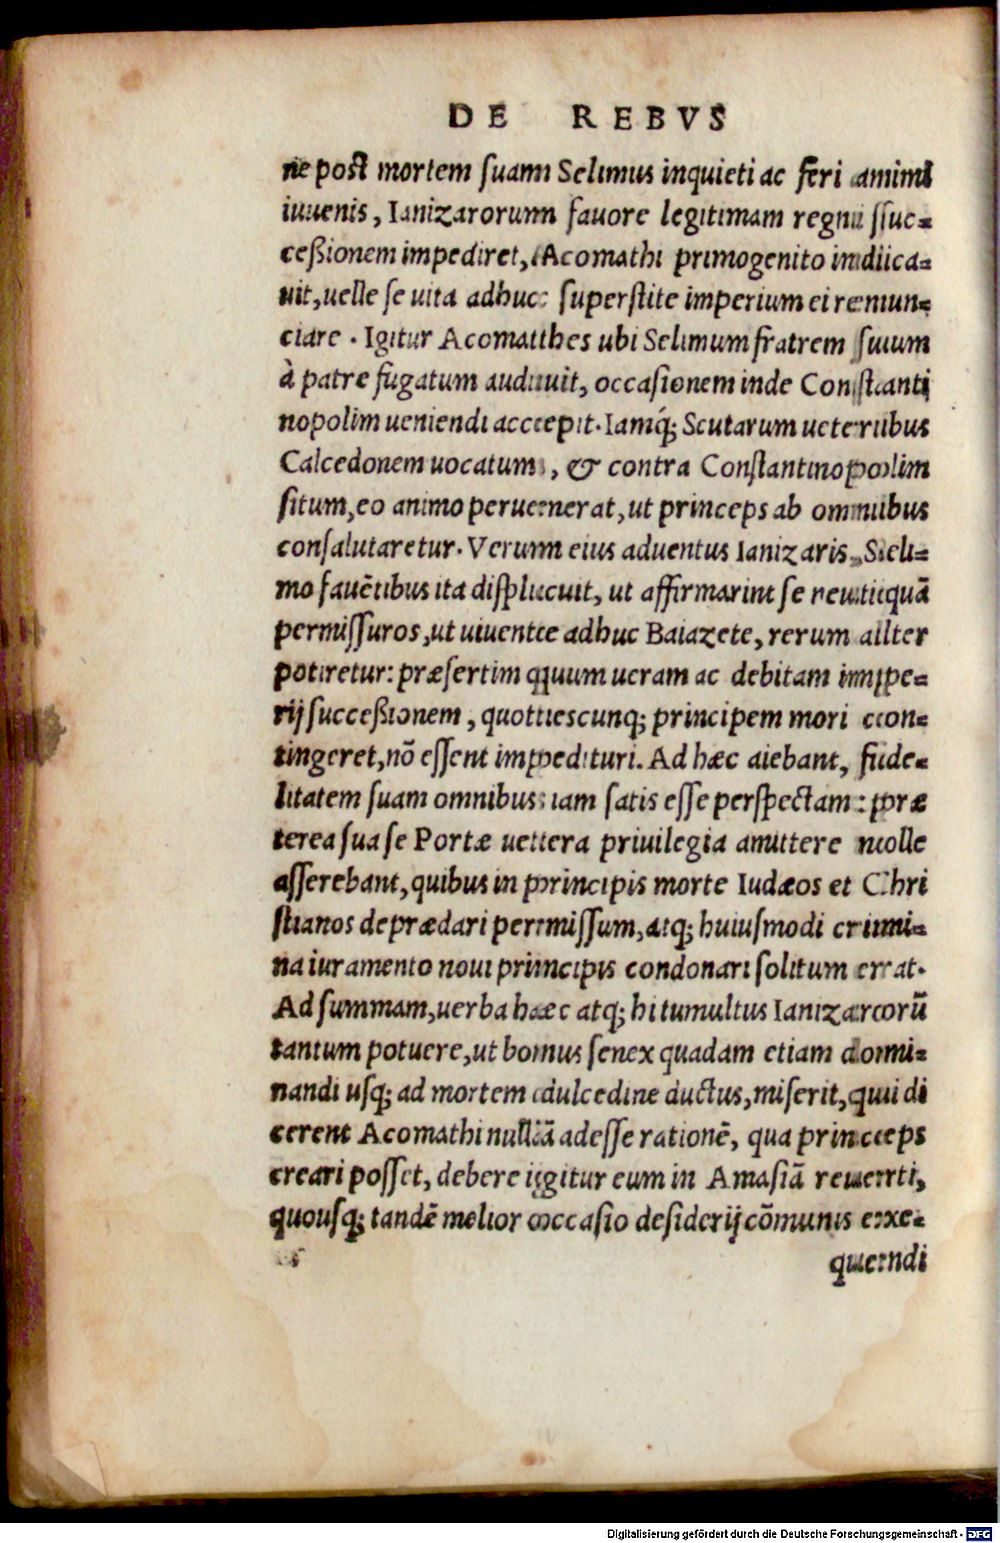 DE REBVS
ne post mortem suam Selimus inquieti ac feri animi
iuuenis, Ianizarorum fauore legitimam regni suc-
ceßionem impediret, Acomathi primogenito indica-
uit, uelle se uita adhuc superstite imperium ei renun-
ciare. Igitur Acomathes ubi Selimum fratrem suum
à patre fugatum audiuit, occasionem inde Constanti
nopolim ueniendi accepit. Iamq́; Scutarum ueteribus
Calcedonem uocatum, & contra Constantinopolim
situm, eo animo peruenerat, ut princeps ab omnibus
consalutaretur. Verum eius aduentus Ianizaris, Seli-
mo fauẽtibus ita displicuit, ut affirmarint se neutiquã
permissuros, ut uiuente adhuc Baiazete, rerum aliter
potiretur: præsertim quum ueram ac debitam impe-
rij succeßionem, quotiescunq; principem mori con-
tingeret, nõ essent impedituri. Ad hæc aiebant, fide-
litatem suam omnibus iam satis esse perspectam: præ
terea sua se Portæ uetera priuilegia amittere nolle
asserebant, quibus in principis morte Iudæos et Chri
stianos deprædari permissum, atq; huiusmodi crimi-
na iuramento noui principis condonari solitum erat.
Ad summam, uerba hæc atq; hi tumultus Ianizarorũ
tantum potuere, ut bonus senex quadam etiam domi-
nandi usq; ad mortem dulcedine ductus, miserit, qui di
cerent Acomathi nullã adesse rationẽ, qua princeps
creari posset, debere igitur eum in Amasiã reuerti,
quousq; tandẽ melior occasio desiderij cõmunis exe-
quendi
Digitalisierung gefördert durch die Deutsche Forschungsgemeinschaft - DFG